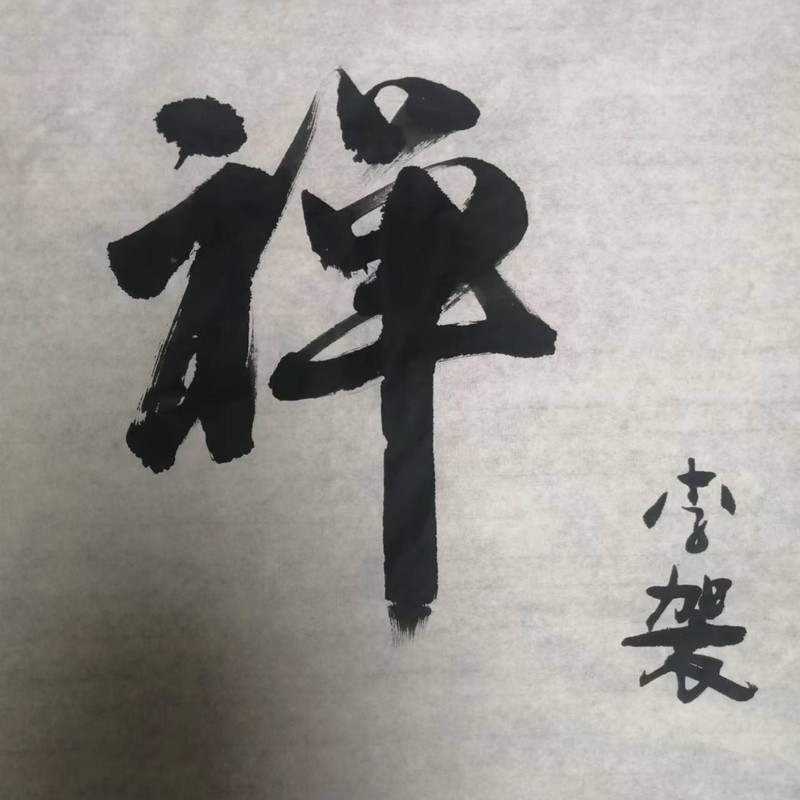 禅
李袈